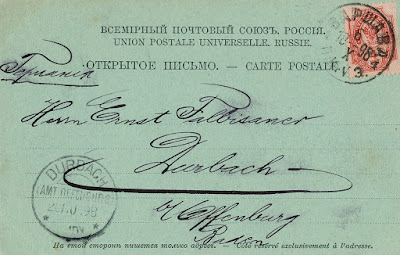 ВСЕМІРНЫЙ ПОЧТОВЫЙ СОЮЗЪ. РОССІЯ.
UNION POSTALE UNIVERSELLE. RUSSIE.
ОТКРЫТОЕ ПИСЬМО. — CARTE POSTALE.
ВАРШАВА
Германія
Herrn Ernst Falbisaner
Durbach
DURBACH
b/Offenburg
Baden
На этой сторонѣ пишется только адресъ. — Côté réservé exclusivement à l'adresse.